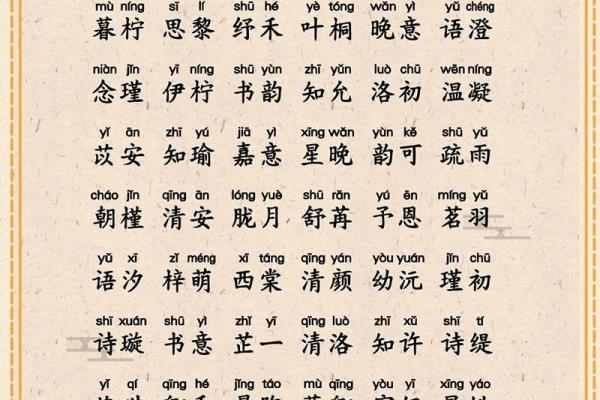 mù níng sī lí shū hé yè tóng wǎn yì yǔ chéng
暮柠 思黎 纾禾 叶桐 晚意 语澄
niàn jǐn yī níng shū yùn zhī yǔn luò chū wēn níng
念瑾 伊柠 书韵 知允 洛初 温凝
yǐ ān zhī yú jiā yì xīng wǎn yùn kě shū yǔ
苡安 知瑜 嘉意 星晚 韵可 疏雨
cháo jǐn qīng ān lóng yuè shū rǎn yú ēn míng yǔ
朝槿 清安 胧月 舒苒 予恩 茗羽
yǔ xī zǐ méng xī táng qīng yán yòu yuán jǐn chū
语汐 梓萌 西棠 清颜 幼沅 瑾初
shī xuán shū yì zhǐ yī qīng luò zhī xǔ shī tí
诗璇 书意 芷一 清洛 知许 诗缇
yǐ qí qīng hé jǐng táo mù qīng yòu yī xīng yáo